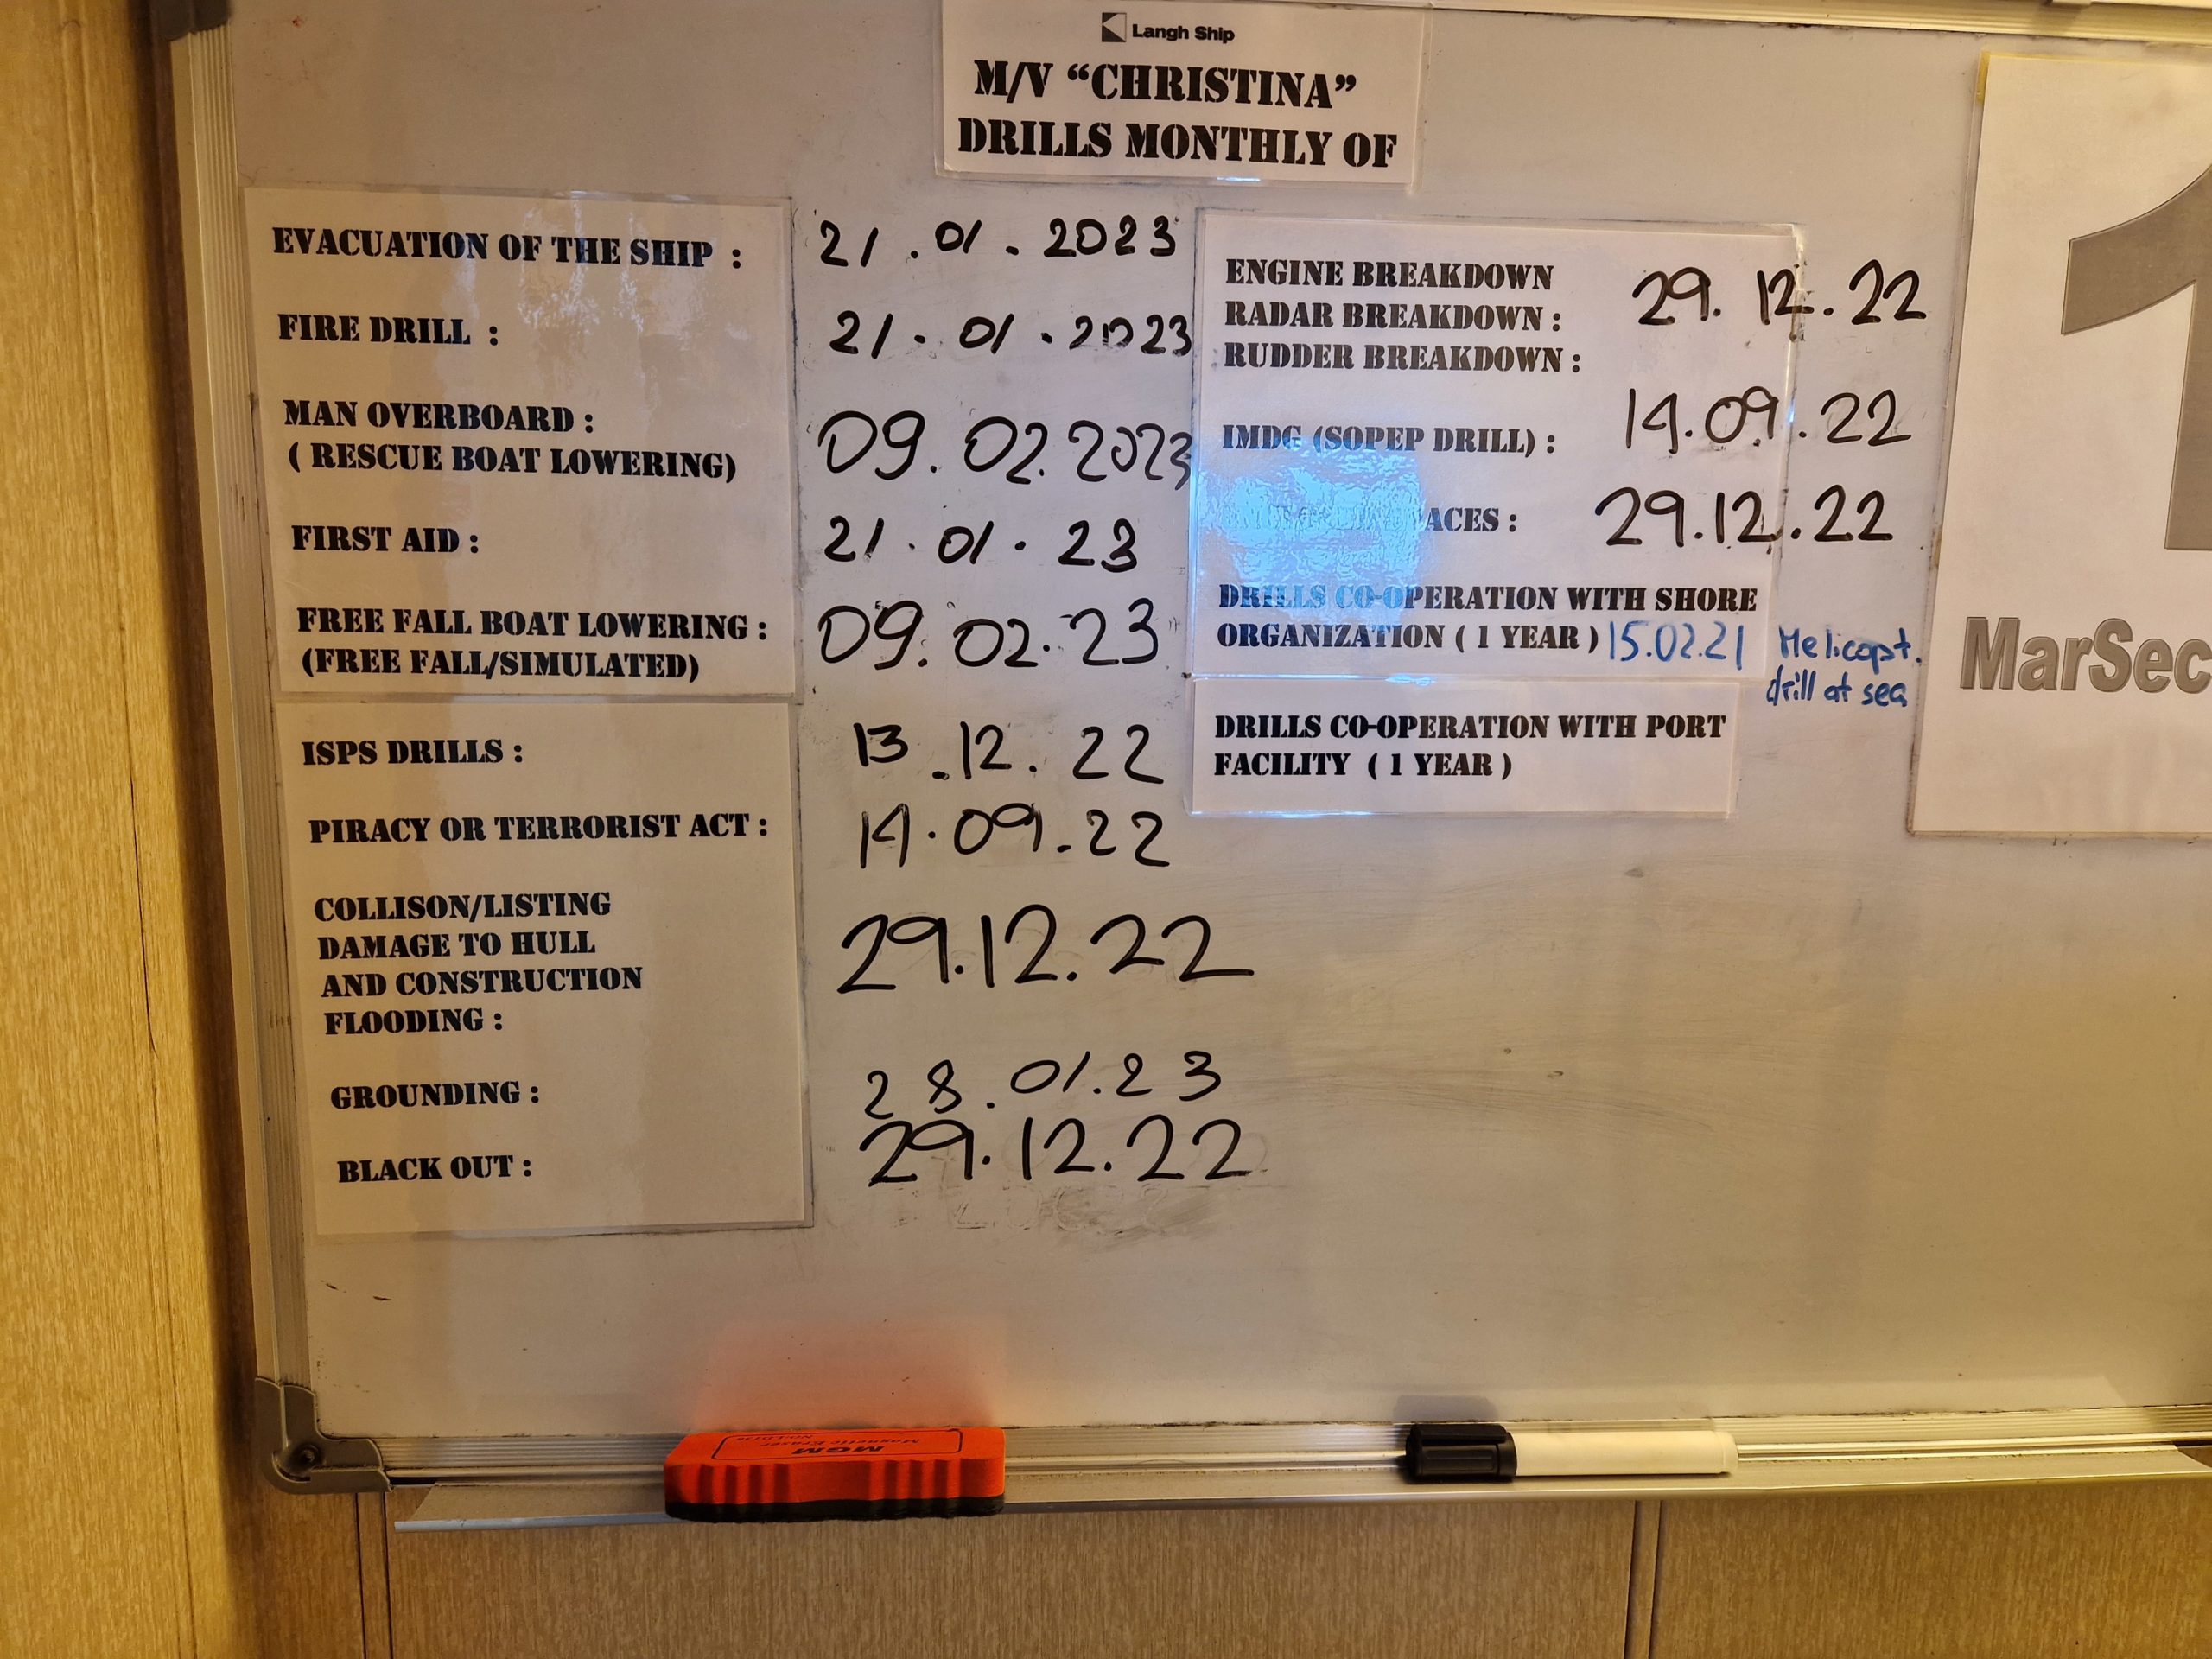 Langh Ship
M/V “CHRISTINA”
DRILLS MONTHLY OF
EVACUATION OF THE SHIP : 21.01.2023
FIRE DRILL : 21.01.2023
MAN OVERBOARD :
( RESCUE BOAT LOWERING) 09.02.2023
FIRST AID : 21.01.23
FREE FALL BOAT LOWERING : 09.02.23
(FREE FALL/SIMULATED)
ISPS DRILLS : 13.12.22
PIRACY OR TERRORIST ACT : 14.09.22
COLLISON/LISTING
DAMAGE TO HULL 29.12.22
AND CONSTRUCTION
FLOODING :
GROUNDING : 28.01.23
BLACK OUT : 29.12.22
ENGINE BREAKDOWN
RADAR BREAKDOWN : 29.12.22
RUDDER BREAKDOWN :
IMDG (SOPEP DRILL) : 14.09.22
29.12.22
DRILLS CO-OPERATION WITH SHORE
ORGANIZATION ( 1 YEAR ) 15.02.21 Helicopt.
drill at sea
DRILLS CO-OPERATION WITH PORT
FACILITY ( 1 YEAR )
1
MarSec
MGM
Magnetic Eraser